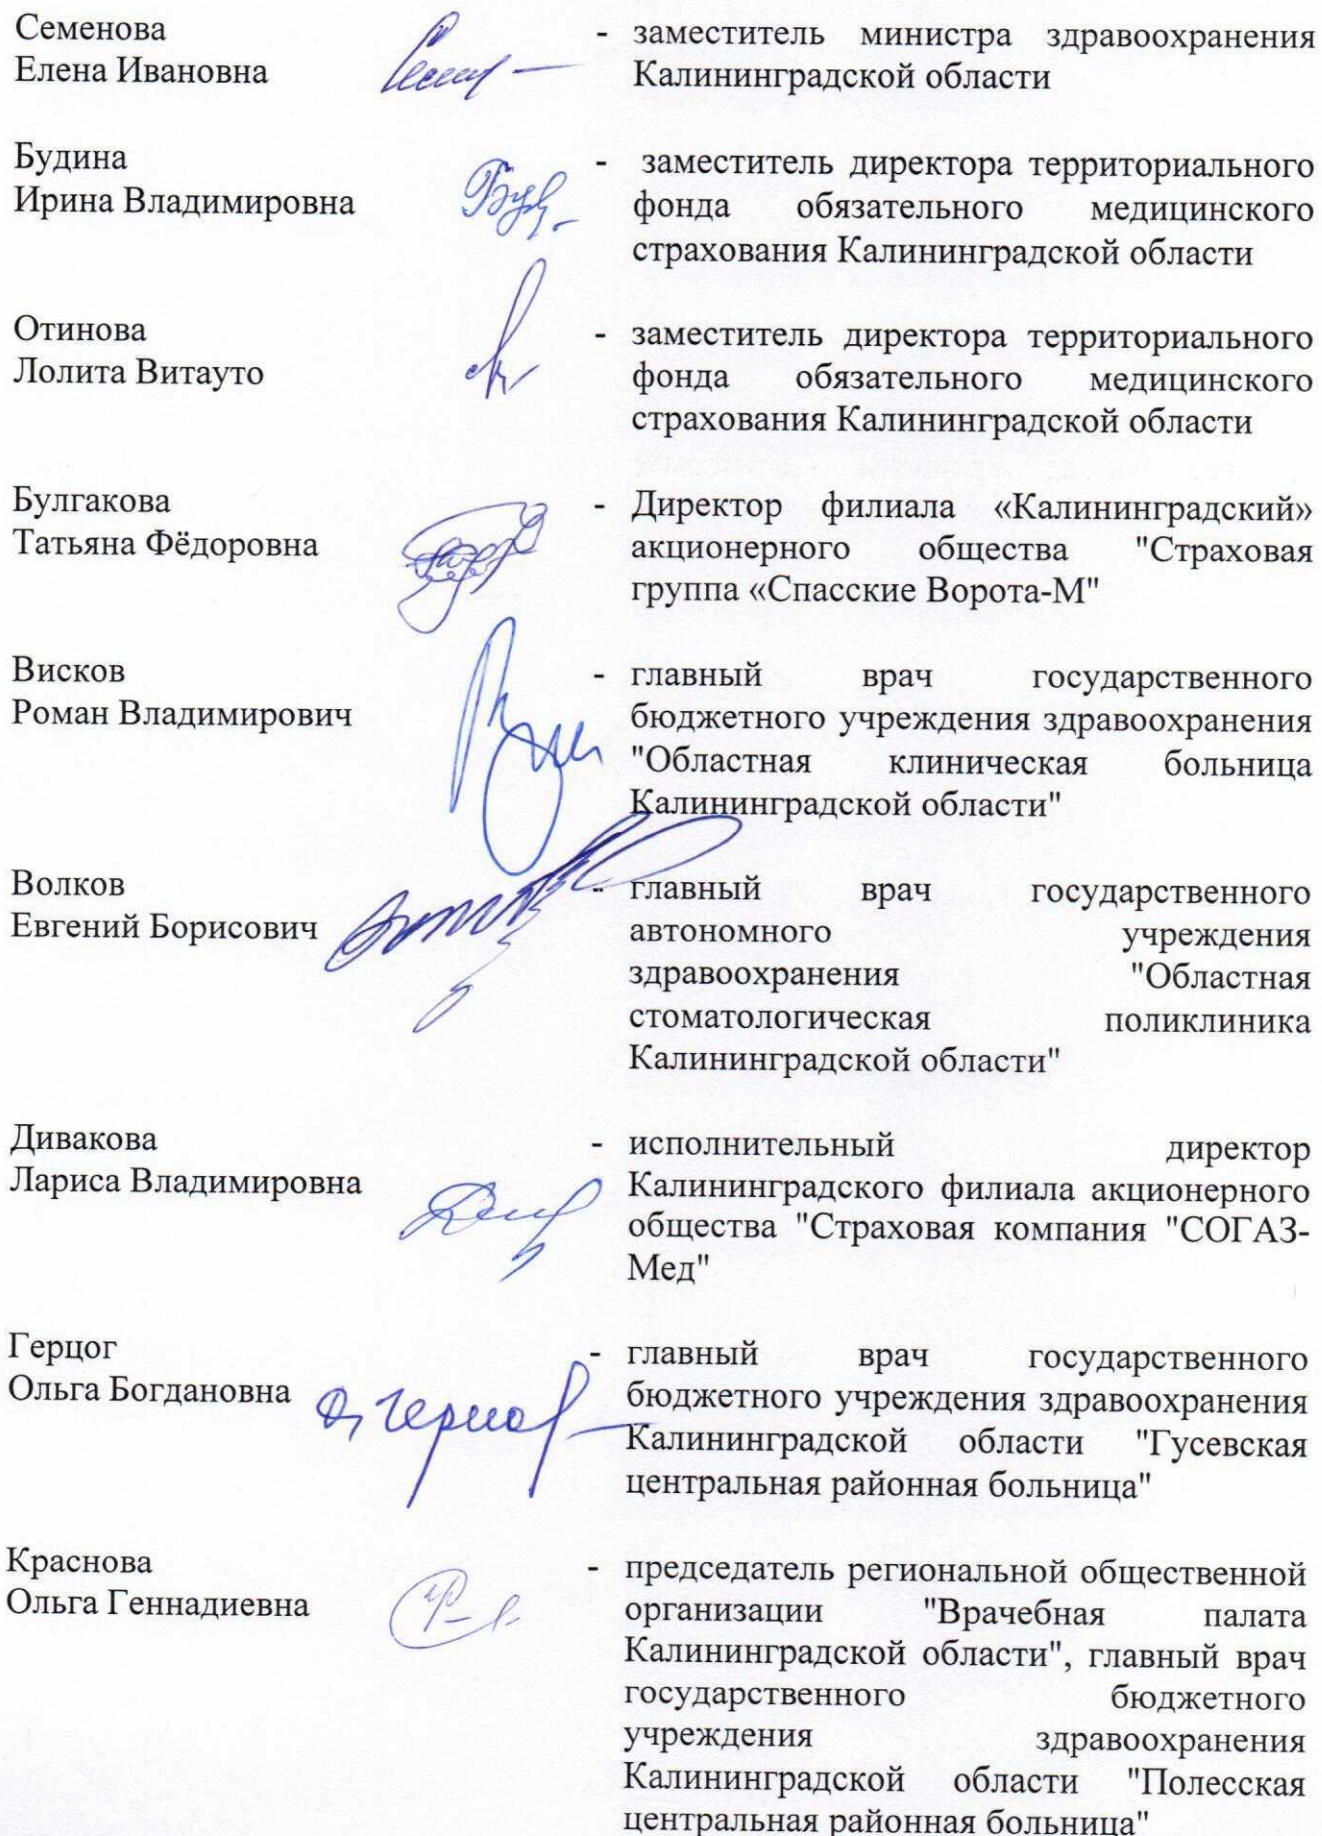 Семенова
Елена Ивановна
- заместитель министра здравоохранения
Калининградской области
Будина
Ирина Владимировна
- заместитель директора территориального
фонда обязательного медицинского
страхования Калининградской области
Отинова
Лолита Витауто
- заместитель директора территориального
фонда обязательного медицинского
страхования Калининградской области
Булгакова
Татьяна Фёдоровна
- Директор филиала «Калининградский»
акционерного общества "Страховая
группа «Спасские Ворота-М"
Висков
Роман Владимирович
- главный врач государственного
бюджетного учреждения здравоохранения
"Областная клиническая больница
Калининградской области"
Волков
Евгений Борисович
- главный врач государственного
автономного учреждения
здравоохранения "Областная
стоматологическая поликлиника
Калининградской области"
Дивакова
Лариса Владимировна
- исполнительный директор
Калининградского филиала акционерного
общества "Страховая компания "СОГАЗ-
Мед"
Герцог
Ольга Богдановна
- главный врач государственного
бюджетного учреждения здравоохранения
Калининградской области "Гусевская
центральная районная больница"
Краснова
Ольга Геннадиевна
- председатель региональной общественной
организации "Врачебная палата
Калининградской области", главный врач
государственного бюджетного
учреждения здравоохранения
Калининградской области "Полесская
центральная районная больница"